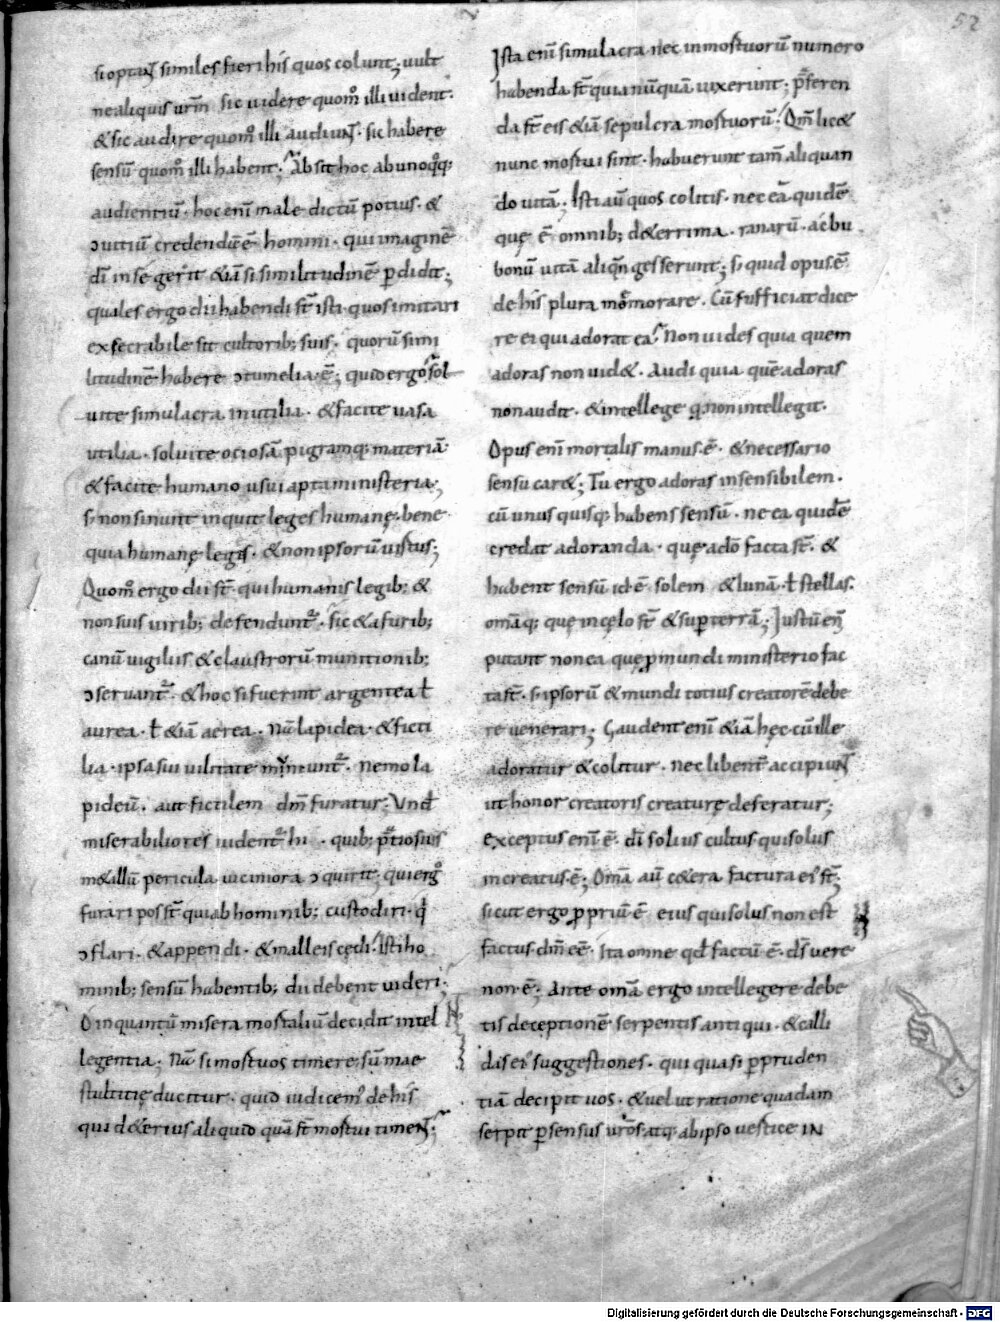 52
si optanꞇ similes fieri his quos colunt; uult
ne aliquis urm̄ sic uidere quom̊ illi uident·
& sic audire quom̊ illi audiunꞇ· sic habere
sensū quom̊ illi habent; Absit hoc ab unoq̊q;
audientiū· hoc enī male dictū potius· &
ɔuitiū credendū ē homini· qui imaginē
dī in se gerit &iā si similitudinē ꝑdidit;
quales ergo dii habendi st̄ isti· quos imitari
exsecrabile sit cultorib; suis· quorū simi
litudinē habere ɔtumelia ē; quid ergo sol
uite simulacra inutilia· & facite uasa
utilia· soluite ociosā pigramq; materiā·
& facite humano usui apta ministeria;
s; non sinunt inquit leges humanę· bene·
quia humanę leges· & non ipsorū uirtus;
Quom̊ ergo dii st̄· qui humanis legib; &
non suis uirib; defendunt᷑· sic & a furib;
canū uigiliis & claustrorū munitionib;
ɔseruant᷑· & hoc si fuerint argentea ł
aurea· ł &iā aerea· Nā lapidea· & ficti
lia· ipsa sui uilitate muniunt᷑· nemo la
pideū· aut fictilem dm̄ furatur; Und
miserabiliores uident᷑ hi· quib; p̄tiosius
m&allū pericula uiciniora ɔquirit; qui erg̊
furari poss̄t qui ab hominib; custodiri· q̄
ɔflari· & appendi· & malleis cędi· Isti ho
minib; sensū habentib; dii debent uideri;
O inquantū misera mortaliū decidit intel
legentia· Nā si mortuos timere sūmae
stultitię ducitur· quid iudicem᷒ de his
qui d&erius aliquid quā st̄ mortui timenꞇ;
Ista enī simulacra nec in mortuorū numero
habenda st̄ quia nūquā uixerunt; p̄feren
da st̄ eis &iā sepulcra mortuorū· Qm̄ lic&
nunc mortui sint· habuerunt tam̄ aliquan
do uitā· Isti aū quos colitis· nec eā quidē
quę ē omnib; d&errima· ranarū· ac bu
bonū uitā aliqn̄ gesserunt; s; quid opus ē
de his plura mēmorare· Cū sufficiat dice
re ei qui adorat ea· Non uides quia quem
adoras non uid&· Audi quia quē adoras
non audit· & intellege q̣ non intellegit·
Opus enī mortalis manus ē· & necessario
sensu car&; Tu ergo adoras insensibilem·
cū unus quisq; habens sensū· ne ea quidē
credat adoranda· quę a dō facta st̄· &
habent sensū id ē solem & lunā· ł stellas·
omāq; quę in celo st̄ & sup terrā; Iustū en̄
putant non ea quę ꝑ mundi ministerio fac
ta st̄· s; ipsorū & mundi totius creatorē debe
re uenerari; Gaudent enī &iā hęc cū ille
adoratur & colitur· nec libent᷑ accipiunꞇ
ut honor creatoris creaturę deferatur;
exceptus enī ē· dī solius cultus qui solus
increatus ē; Omā aū c&era factura ei᷒ st̄;
sicut ergo ꝓpriū ē eius qui solus non est
factus dm̄ eē· Ita omne qd̄ factū ē· ds̄ uere
non ē; Ante omā ergo intellegere debe
tis deceptionē serpentis antiqui· & calli
das ei᷒ suggestiones· qui quasi ꝑ pruden
tiā decipit uos· & uel ut ratione quadam
serpit ꝑ sensus ur̄os· atq; ab ipso uertice IN
Digitalisierung gefördert durch die Deutsche Forschungsgemeinschaft - DFG